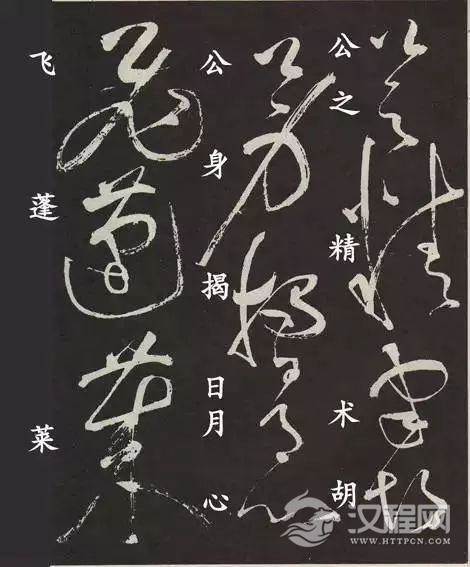 公之精术胡
公身揭日月心
飞蓬莱
汉程网
WWW.HTTPCN.COM